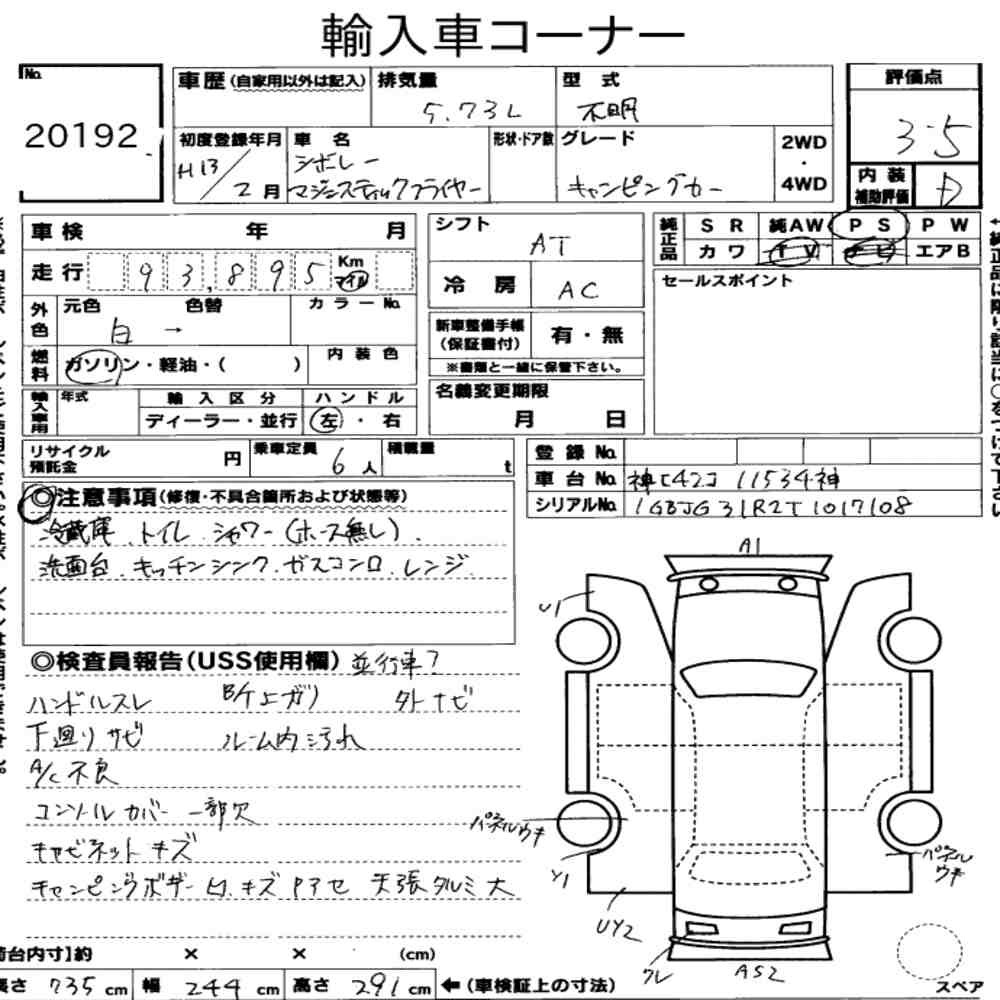 輸入車コーナー
No. 20192
車歴(自家用以外は記入) 排気量 5.73L 型式 不明
評価点 3.5
初度登録年月 H13/2月 車名 シボレー マジェスティックフライヤー 形状・ドア数 グレード キャンピングカー 2WD・4WD
内装補助評価 D
車検 年 月
走行 93,895 Km マイル
シフト AT
冷房 AC
純正品 SR 純AW PS PW
カワ TV ナビ エアB
セールスポイント
外色 元色 白 → 色替 カラーNo.
燃料 ガソリン・軽油・( ) 内装色
新車整備手帳(保証書付) 有・無
※書類と一緒に保管下さい。
輸入車用 年式 輸入区分 ディーラー・並行 ハンドル 左・右
名義変更期限 月 日
リサイクル預託金 円 乗車定員 6人 積載量 t
登録No.
車台No. 神[42]11534神
シリアルNo. 1GBJG31R2T1017108
◎注意事項(修復・不具合箇所および状態等)
冷蔵庫、トイレ、シャワー(ホース無し)、
洗面台、キッチンシンク、ガスコンロ、レンジ
◎検査員報告(USS使用欄) 並行車?
ハンドルスレ 外ナビ
下廻りサビ ルーム内汚れ
A/C不良
コンソールカバー一部欠
キャビネットキズ
A1
U1
パネルウキ
Y1
UY2
パネルウキ
AS2
スペア
荷台内寸】約 × × (cm)
長さ 735cm 幅 244cm 高さ 291cm ←(車検証上の寸法)